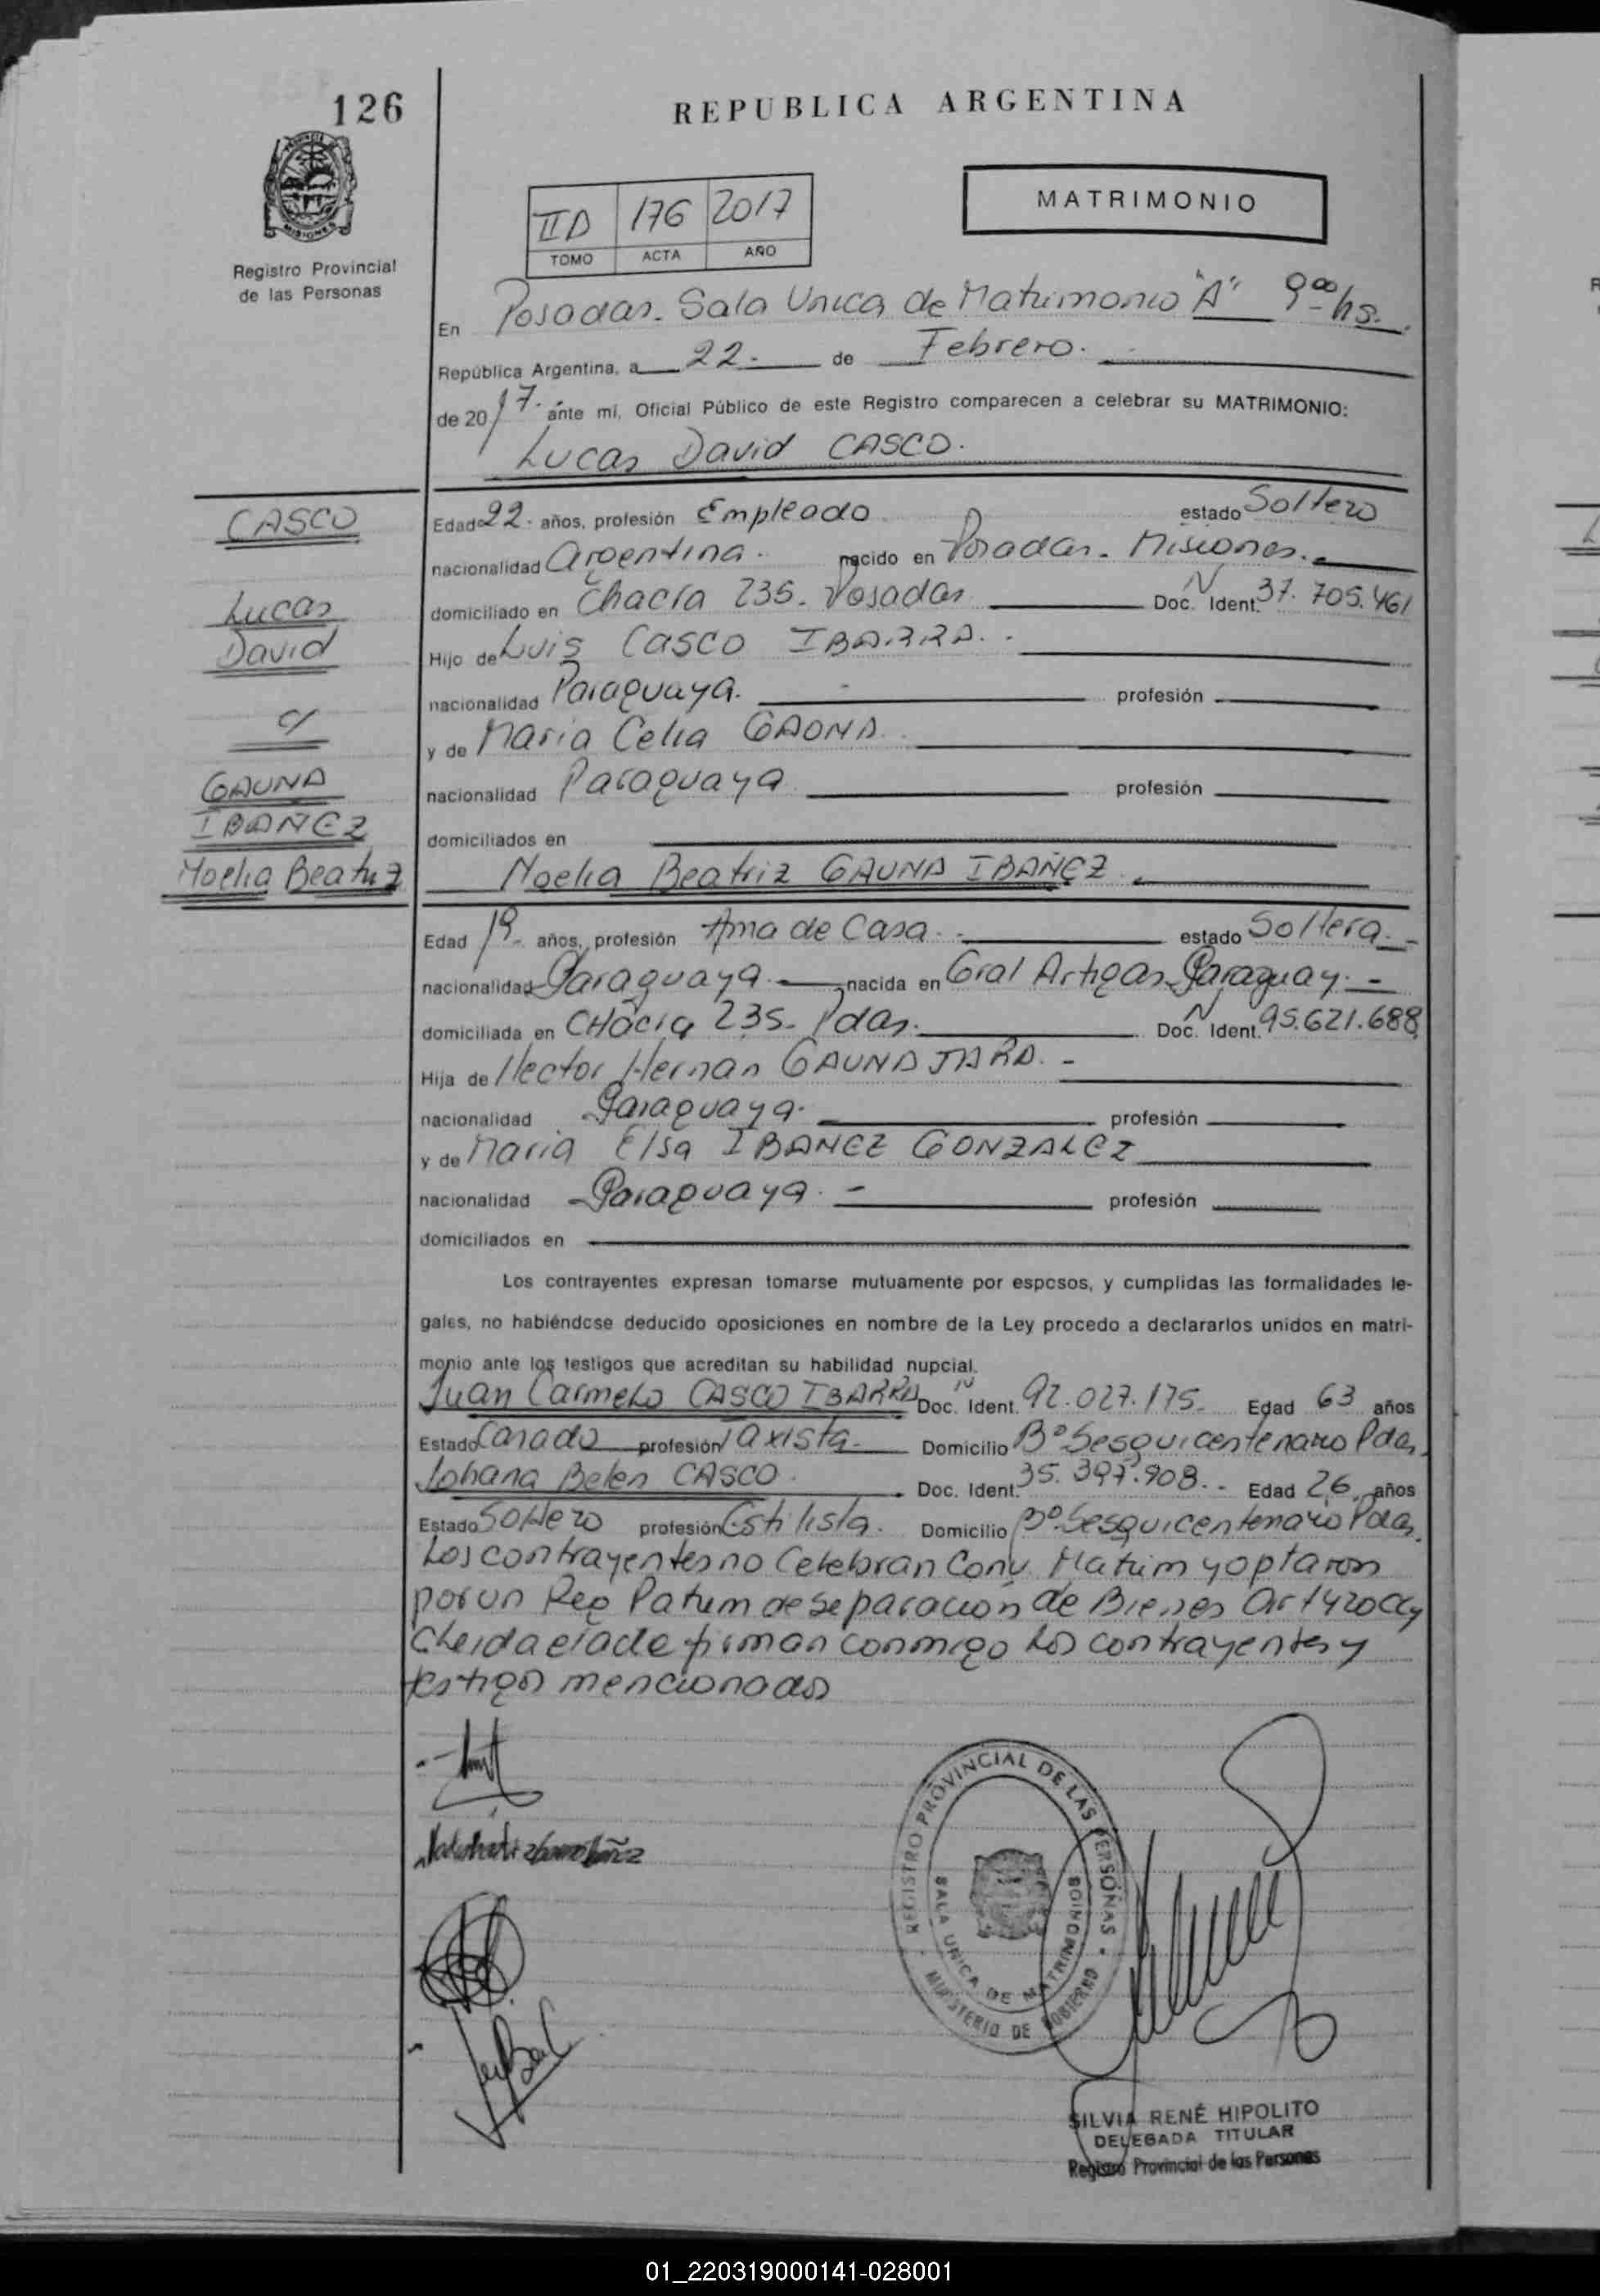 126
REPUBLICA ARGENTINA
MISIONES
Registro Provincial
de las Personas
IID 176 2017
TOMO ACTA AÑO
MATRIMONIO
En Posadas. Sala Unica de Matrimonio "A" 9 00 hs.
República Argentina, a 22. de Febrero.
de 2017. ante mí, Oficial Público de este Registro comparecen a celebrar su MATRIMONIO:
Lucas David CASCO.
CASCO
Lucas
David
c/
GAUNA
IBAÑEZ
Noelia Beatriz
Edad 22. años, profesión Empleado estado Soltero
nacionalidad Argentina. nacido en Posadas. Misiones.
domiciliado en Chacra 235. Posadas Doc. N Ident. 37.705.461
Hijo de Luis CASCO IBARRA.
nacionalidad Paraguaya. profesión
y de Maria Celia GAONA.
nacionalidad Paraguaya profesión
domiciliados en
Noelia Beatriz GAUNA IBAÑEZ.
Edad 19. años, profesión Ama de Casa. estado Soltera.
nacionalidad Paraguaya. nacida en Gral Artigas Paraguay.
domiciliada en CHacra 235. Pdas. Doc. N Ident. 95.621.688
Hija de Hector Hernan GAUNA JARA.
nacionalidad Paraguaya. profesión
y de Maria Elsa IBANEZ GONZALEZ
nacionalidad Paraguaya. profesión
domiciliados en
Los contrayentes expresan tomarse mutuamente por esposos, y cumplidas las formalidades le-
gales, no habiéndose deducido oposiciones en nombre de la Ley procedo a declararlos unidos en matri-
monio ante los testigos que acreditan su habilidad nupcial.
Juan Carmelo CASCO IBARRA Doc. N Ident. 92.027.175. Edad 63 años
Estado Casado profesión Taxista. Domicilio B° Sesquicentenario Pdas.
Johana Belen CASCO. Doc. Ident. 35.397.908. Edad 26. años
Estado Soltero profesión Estilista. Domicilio B° Sesquicentenario Pdas.
Los contrayentes no Celebran Conv. Matrim y optaron
por un Reg Patrim de Separacion de Bienes Art 420 CCy
C leida el acta firman conmigo los contrayentes y
testigos mencionados
REGISTRO PROVINCIAL DE LAS PERSONAS
SALA UNICA DE MATRIMONIOS
MINISTERIO DE GOBIERNO
SILVIA RENÉ HIPOLITO
DELEGADA TITULAR
Registro Provincial de las Personas
01_220319000141-028001